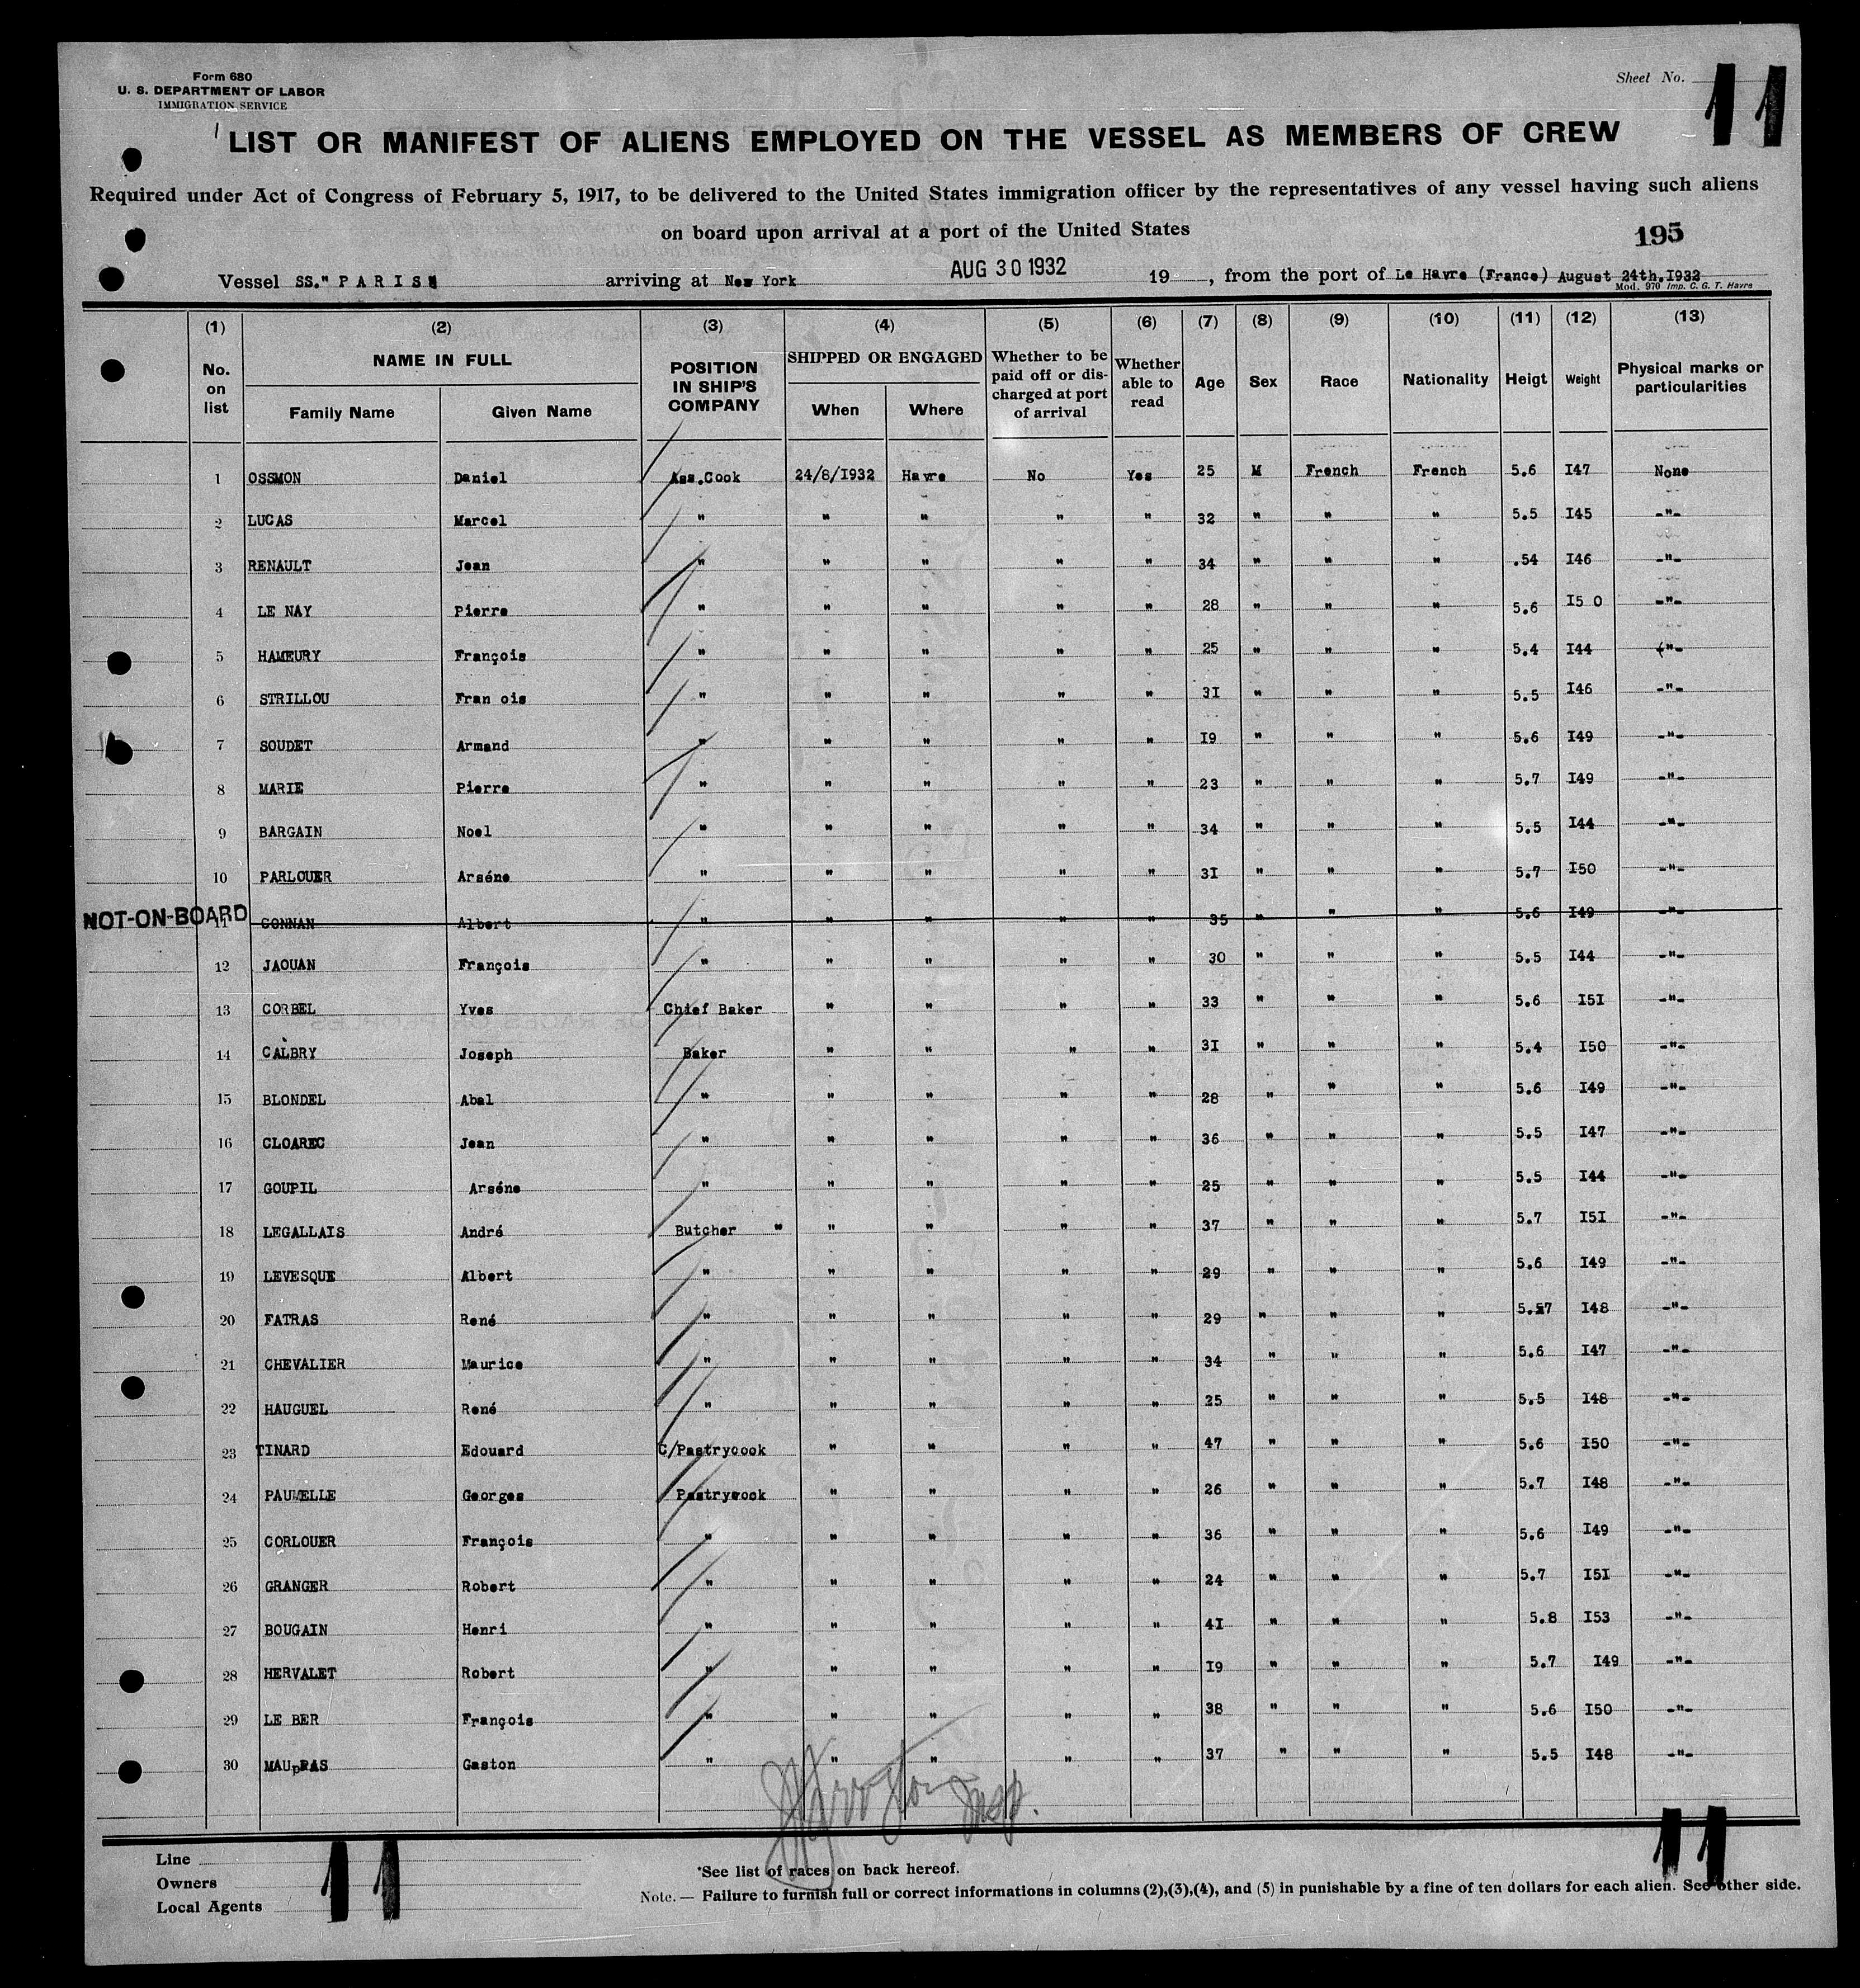 Form 680
U. S. DEPARTMENT OF LABOR
IMMIGRATION SERVICE
Sheet No. 11
LIST OR MANIFEST OF ALIENS EMPLOYED ON THE VESSEL AS MEMBERS OF CREW
Required under Act of Congress of February 5, 1917, to be delivered to the United States immigration officer by the representatives of any vessel having such aliens
on board upon arrival at a port of the United States
195
Vessel SS." P A R I S" arriving at New York AUG 30 1932 19 , from the port of Le Havre (France) August 24th,I932
Mod. 970 Imp. C. G. T. Havre
(1) (2) (3) (4) (5) (6) (7) (8) (9) (10) (11) (12) (13)
No. on list NAME IN FULL Family Name Given Name POSITION IN SHIP'S COMPANY SHIPPED OR ENGAGED When Where Whether to be paid off or discharged at port of arrival Whether able to read Age Sex Race Nationality Heigt Weight Physical marks or particularities
1 OSSMON Daniel Ass.Cook 24/8/I932 Havre No Yes 25 M French French 5.6 I47 None
2 LUCAS Marcel " " " " " 32 " " " 5.5 I45 -"-
3 RENAULT Jean " " " " " 34 " " " .54 I46 -"-
4 LE NAY Pierre " " " " " 28 " " " 5.6 I5 0 -"-
5 HAMEURY François " " " " " 25 " " " 5.4 I44 -"-
6 STRILLOU Fran ois " " " " " 3I " " " 5.5 I46 -"-
7 SOUDET Armand " " " " " I9 " " " 5.6 I49 -"-
8 MARIE Pierre " " " " " 23 " " " 5.7 I49 -"-
9 BARGAIN Noel " " " " " 34 " " " 5.5 I44 -"-
10 PARLOUER Arséne " " " " " 3I " " " 5.7 I50 -"-
NOT-ON-BOARD 11 CONNAN Albert " " " " " 35 " " " 5.6 I49 -"-
12 JAOUAN François " " " " " 30 " " " 5.5 I44 -"-
13 CORBEL Yves Chief Baker " " " " 33 " " " 5.6 I5I -"-
14 CALBRY Joseph Baker " " " " 3I " " " 5.4 I50 -"-
15 BLONDEL Abal " " " " " 28 " " " 5.6 I49 -"-
16 CLOAREC Jean " " " " " 36 " " " 5.5 I47 -"-
17 GOUPIL Arséne " " " " " 25 " " " 5.5 I44 -"-
18 LEGALLAIS André Butcher " " " " " 37 " " " 5.7 I5I -"-
19 LEVESQUE Albert " " " " " 29 " " " 5.6 I49 -"-
20 FATRAS René " " " " " 29 " " " 5.57 I48 -"-
21 CHEVALIER Maurice " " " " " 34 " " " 5.6 I47 -"-
22 HAUGUEL René " " " " " 25 " " " 5.5 I48 -"-
23 TINARD Edouard C/Pastrycook " " " " 47 " " " 5.6 I50 -"-
24 PAUMELLE Georges Pastrycook " " " " 26 " " " 5.7 I48 -"-
25 CORLOUER François " " " " " 36 " " " 5.6 I49 -"-
26 GRANGER Robert " " " " " 24 " " " 5.7 I5I -"-
27 BOUGAIN Henri " " " " " 4I " " " 5.8 I53 -"-
28 HERVALET Robert " " " " " I9 " " " 5.7 I49 -"-
29 LE BER François " " " " " 38 " " " 5.6 I50 -"-
30 MAUpRAS Gaston " " " " " 37 " " " 5.5 I48 -"-
Insp.
Line
Owners
Local Agents
11
11
*See list of races on back hereof.
Note.— Failure to furnish full or correct informations in columns (2),(3),(4), and (5) in punishable by a fine of ten dollars for each alien. See other side.